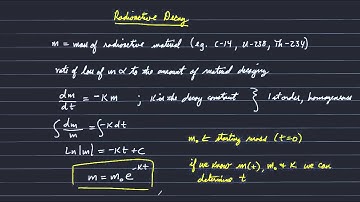 Radioactive Decay
m = mass of radioactive material (eg. C-14, U-238, Th-234)
rate of loss of m ∝ to the amount of material decaying
dm/dt = -Km ; K is the decay constant } 1st order, homogeneous
∫ dm/m = ∫ -K dt
Ln|m| = -Kt + C
m = m₀e^-Kt
m₀ ← starting mass (t=0)
if we know m(t), m₀ & K we can
determine t